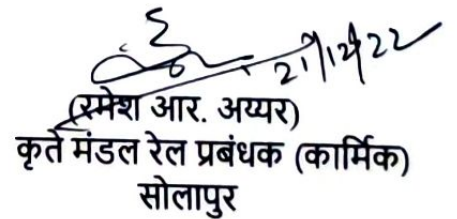 21/12/22
(रमेश आर. अय्यर)
कृते मंडल रेल प्रबंधक (कार्मिक)
सोलापुर